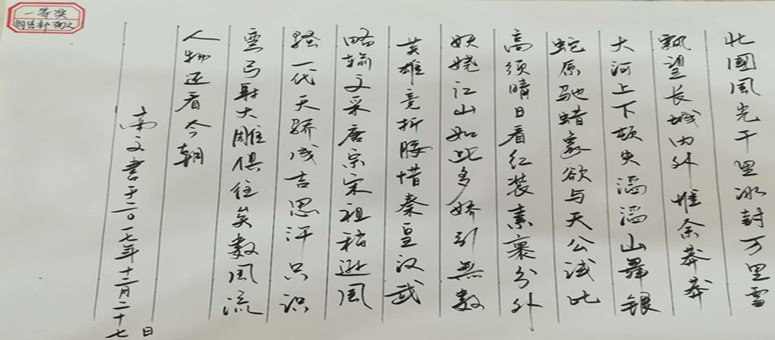 北國风光千里冰封万里雪
飘望长城内外惟余莽莽
大河上下顿失滔滔山舞银
蛇原驰蜡象欲与天公试比
高须晴日看红装素裹分外
妖娆江山如此多娇引無数
英雄竞折腰惜秦皇汉武
略输文采唐宗宋祖稍逊风
骚一代天骄成吉思汗只识
弯弓射大雕俱往矣数风流
人物还看今朝
南文書于二〇一七年十二月二十七日
一等奖
销售部 南文